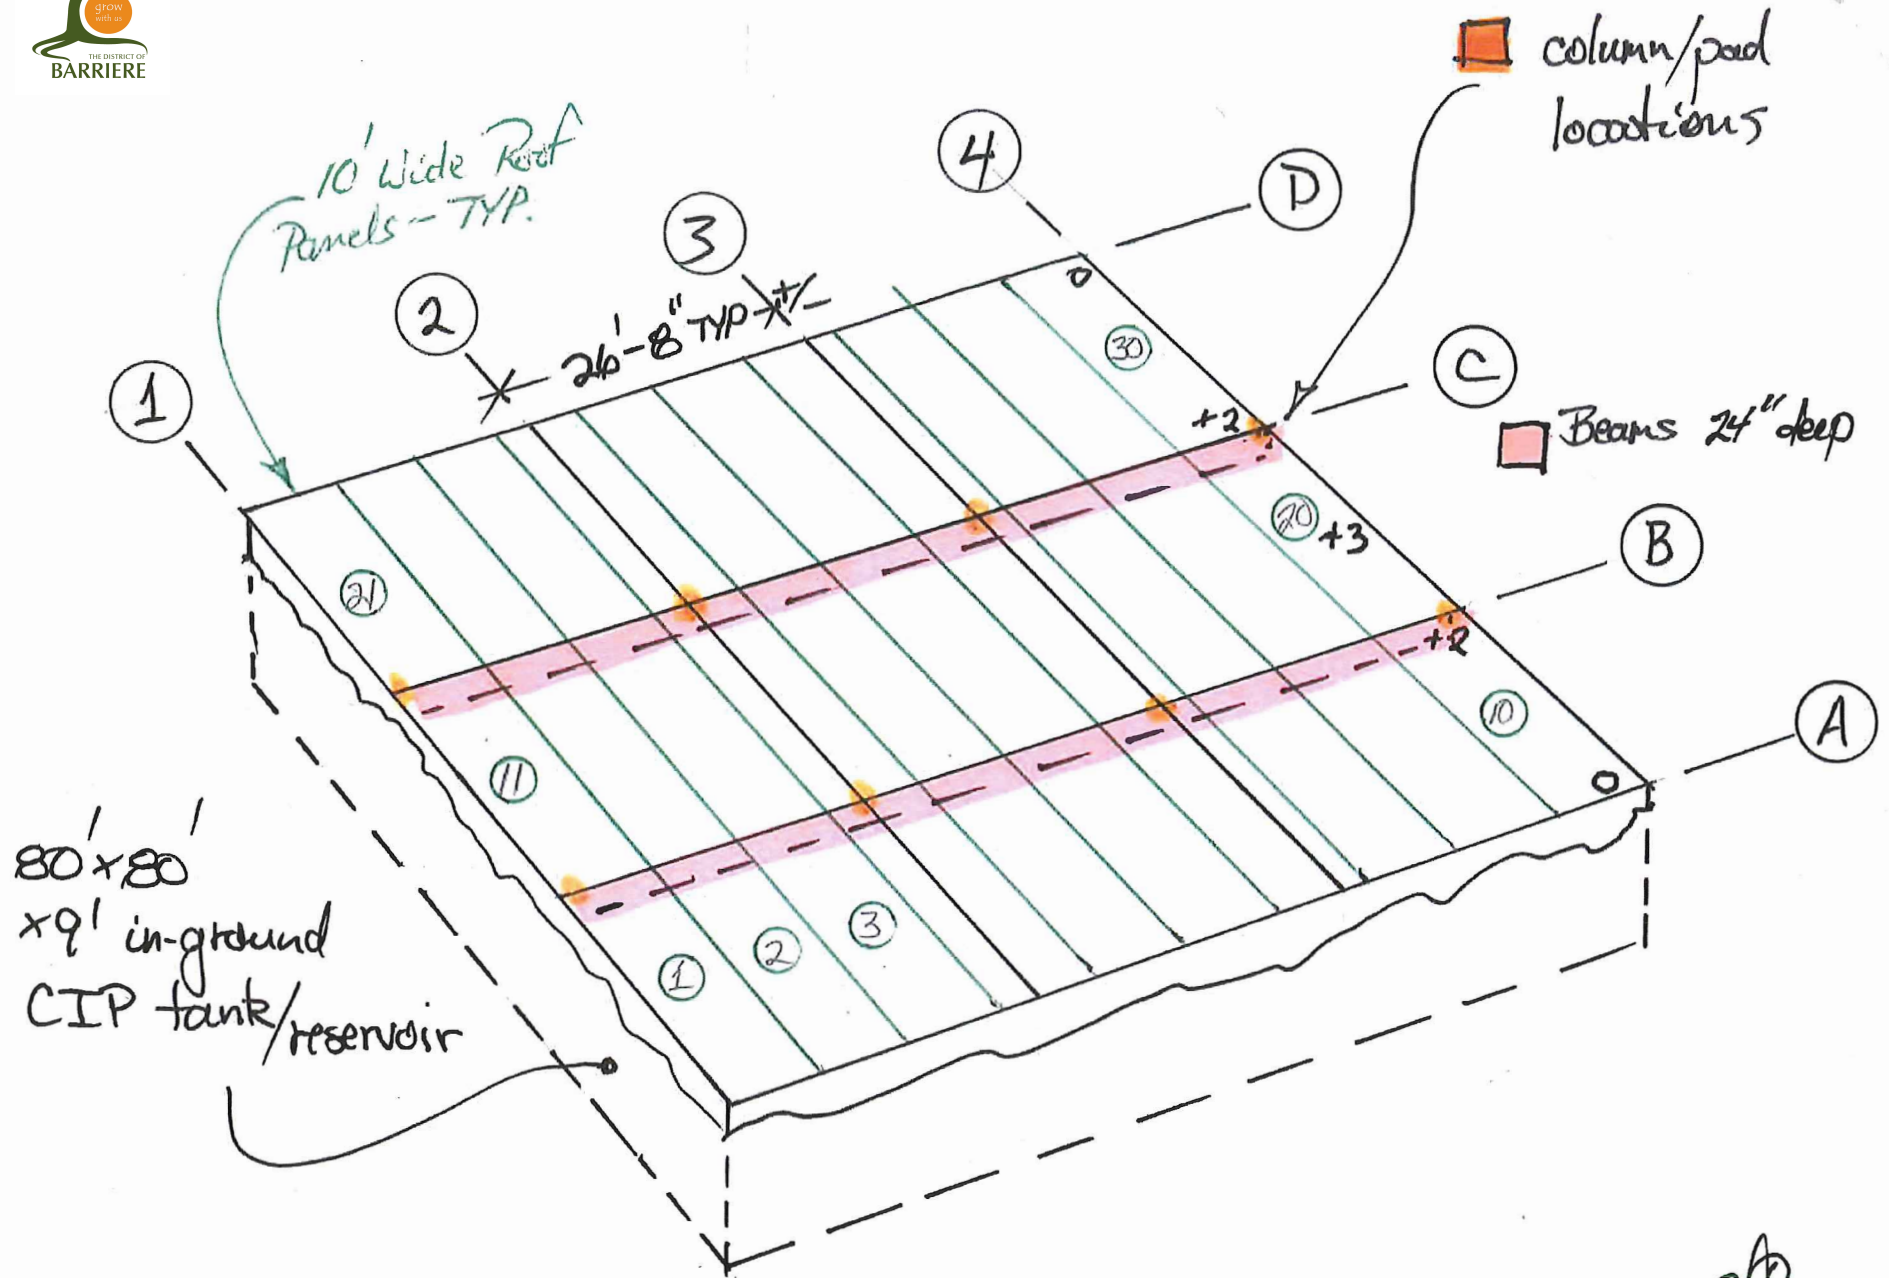 grow
with us
THE DISTRICT OF
BARRIERE
column/pad
locations
10' Wide Roof
Panels - TYP.
4
D
3
2
26'-8" TYP +/-
1
30
C
+2
Beams 24" deep
20 +3
B
21
+2
11
10
A
80' x 80'
x 9' in-ground
CIP tank/reservoir
3
2
1